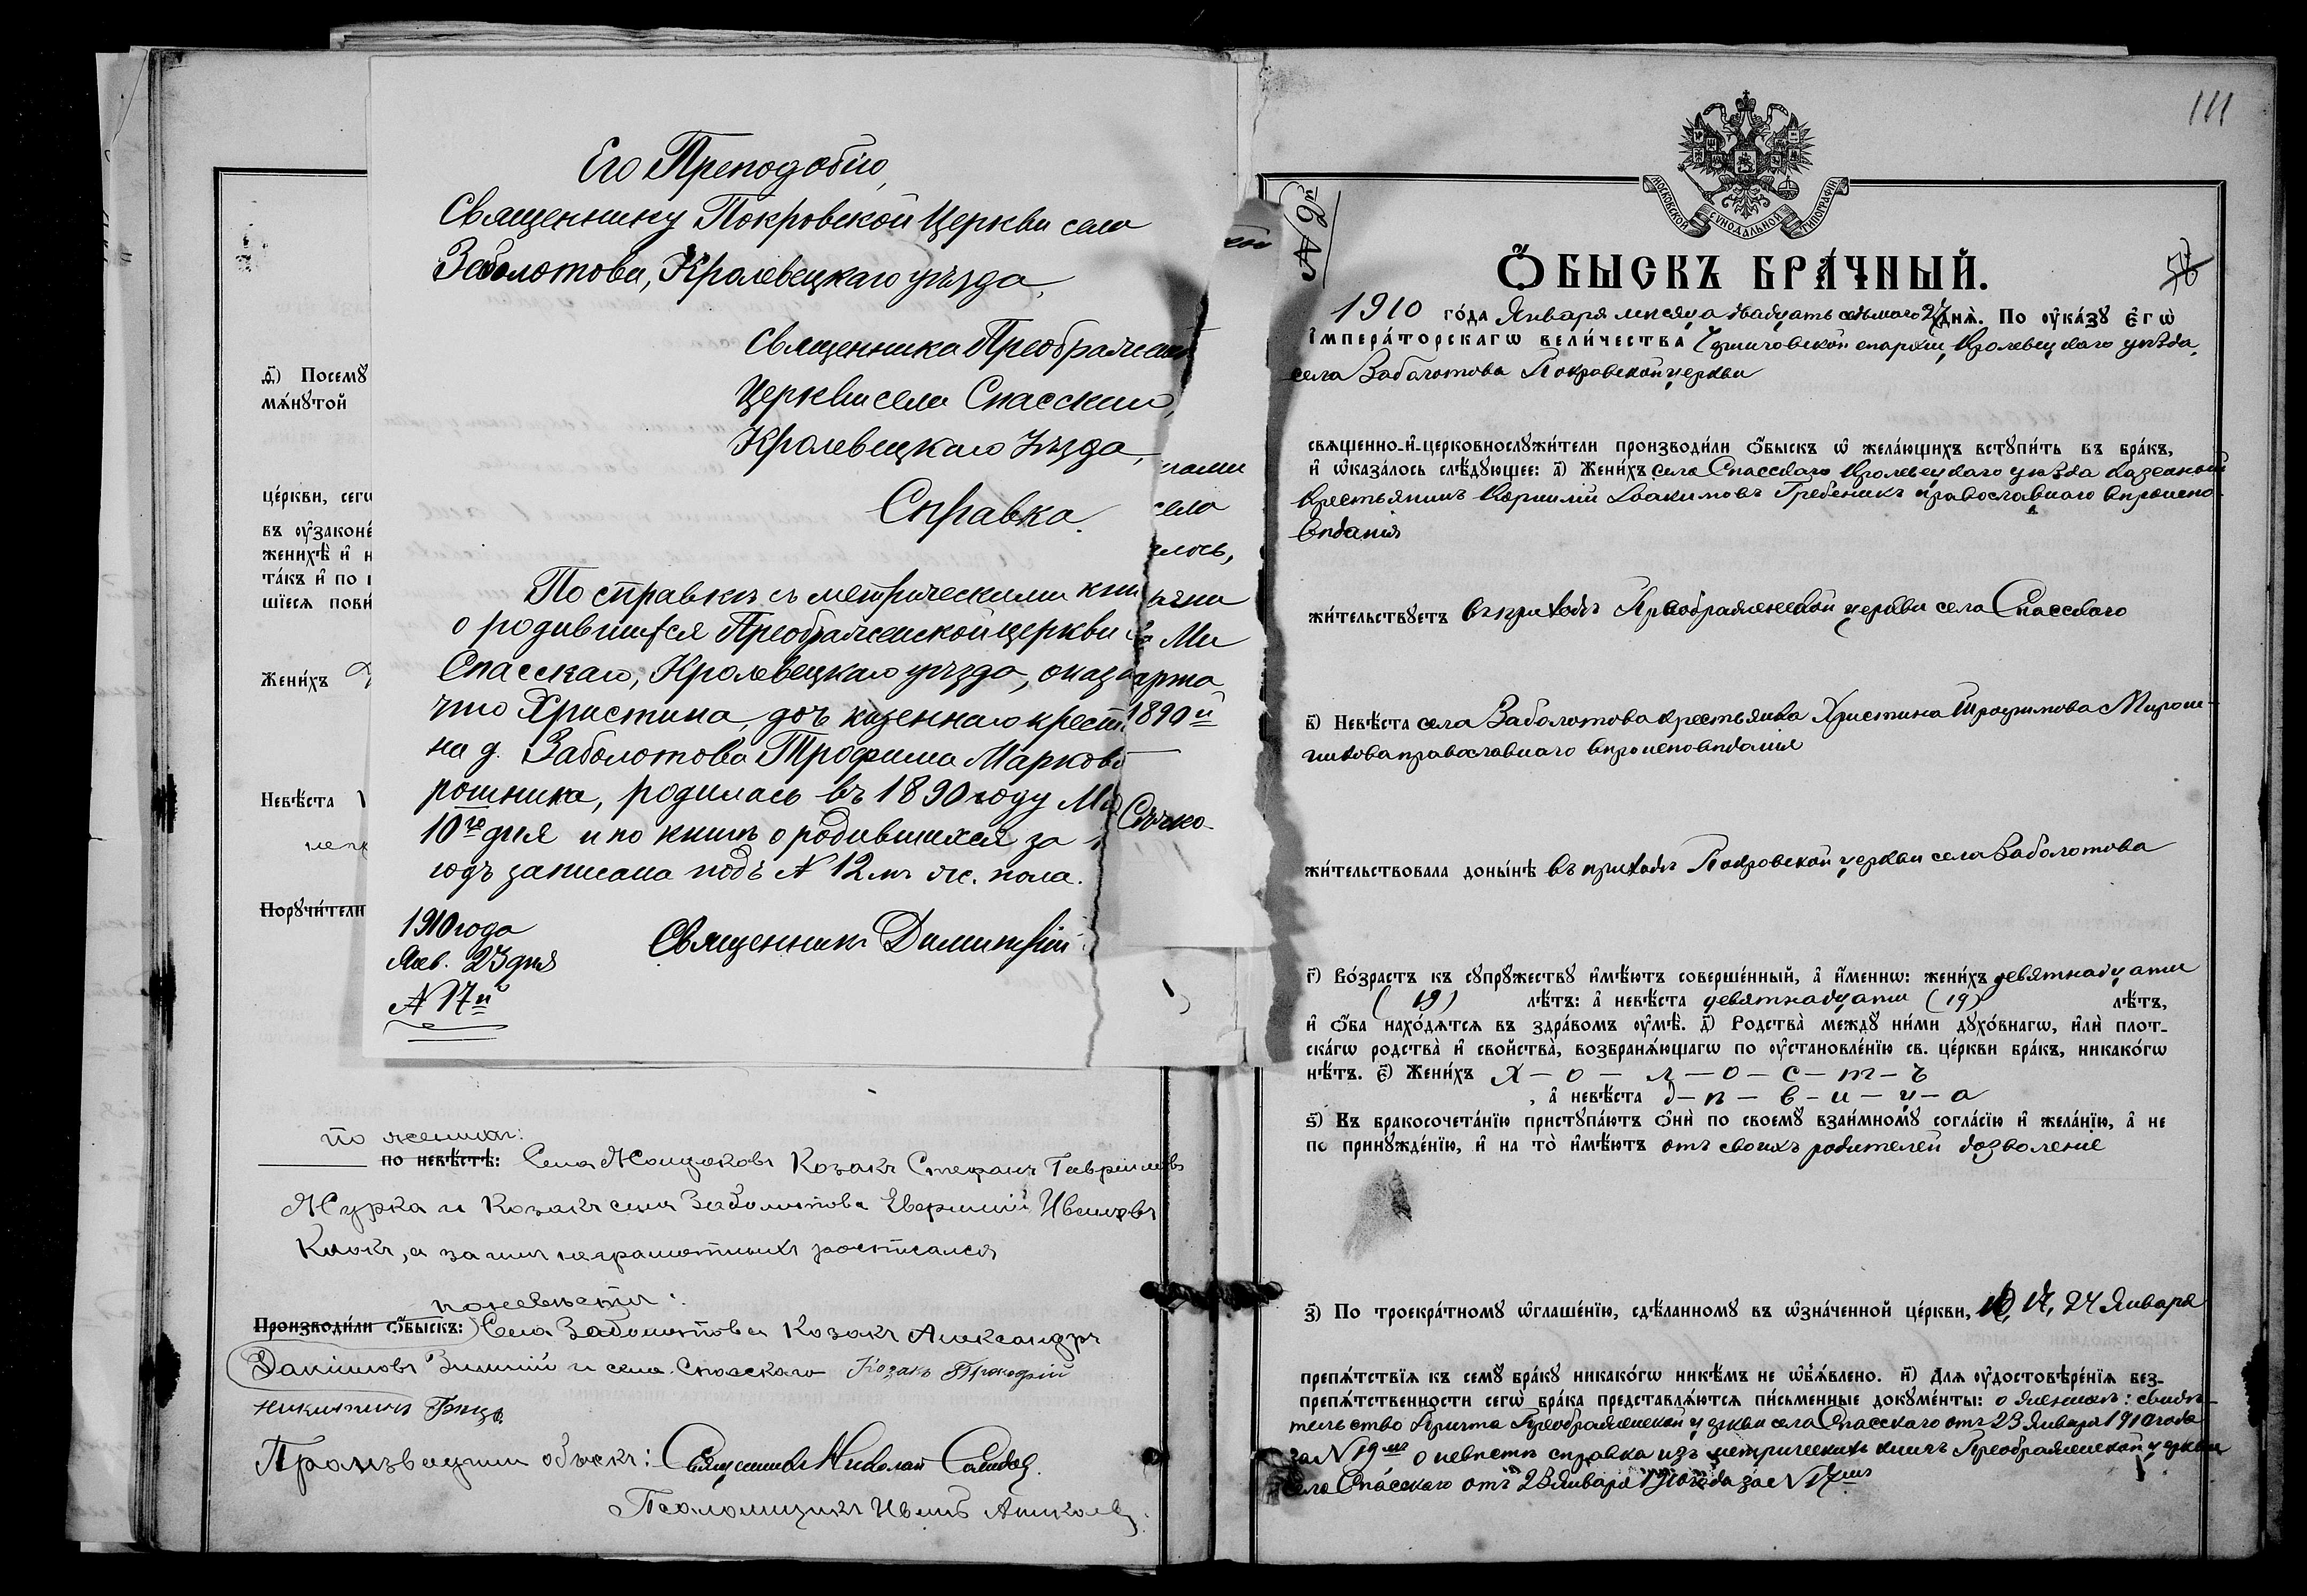 Его Преподобію,
Священнику Покровской Церкви села
Заболотова, Кролевецкаго уѣзда,
Священника Преображенск
Церкви села Спасскаго,
Кролевецкаго Уѣзда,
Справка.
По справкѣ съ метрическими кни
о родившихся Преображенской церкви
Спасскаго, Кролевецкаго уѣзда, оказ
что Христина, дочь казеннаго крест
на д. Заболотова Трофима Марков
рошника, родилась въ 1890 году Ма
10го дня и по книгѣ о родившихся за
годъ записана подъ № 12мъ ж. пола.
1910 года
Янв. 23 дня
№ 17й
Священникъ Димитрій
гами
села
лось,
Ми
арта
1890й
Сѣчко
д҃) Посемꙋ
мѧ́нꙋтой
це́ркви, сегѡ
въ ᲂу҆законе́
женихѣ̀ и҆ н
та́къ и҆ по
шїесѧ пови
Жени́хъ
Невѣ́ста
Порꙋчи́тели
по женихѣ:
по невѣ́стѣ: Села Жолдаковъ Козакъ Стефанъ Гавриловъ
Журка и Козакъ села Заболотова Евфимій Ивановъ
Клокъ, а за нихъ неграмотныхъ росписался
по невѣстѣ:
Производи́ли ѻ҆́быскъ: Села Заболотова Козакъ Александръ
Даніиловъ Зимній и села Спасскаго Козакъ Прокофій
Никитинъ
Производили обыскъ: Священникъ Николай
Псаломщикъ Иванъ
111
№ 9й
МОСКОВСКОЙ СѴНОДАЛЬНОЙ ТИПОГРАФІИ
Ѻ҆БЫСКЪ БРА́ЧНЫЙ.
1910 го́да Января мѣсяца двадцать седьмого 27 днѧ̀. По ᲂу҆ка́зꙋ є҆гѡ̀
і҆мпера́торскагѡ вели́чества Черниговской епархіи, Кролевецкаго уѣзда,
села Заболотова Покровской церкви
свѧщенно-и҆-церковнослꙋжи́тели производи́ли ѻ҆́быскъ ѡ҆ жела́ющихъ встꙋпи́ть въ бра́къ,
и҆ ѡ҆каза́лось слѣ́дꙋющее: а҃) Жени́хъ села Спасскаго Кролевецкаго уѣзда казенной
крестьянинъ Корнилій Іоакимовъ Гребеникъ православнаго вѣроиспо-
вѣданія
жи́тельствꙋетъ въ приходѣ Преображенской церкви села Спасскаго
в҃) Невѣ́ста села Заболотова крестьянка Христина Трофимова Мирош-
никова православнаго вѣроисповѣданія
жи́тельствовала доны́нѣ въ приходѣ Покровской церкви села Заболотова
г҃) Во́зрастъ къ сꙋпрꙋ́жествꙋ и҆мѣ́ютъ соверше́нный, а҆ и҆́меннѡ: жени́хъ девятнадцати
(19) лѣ́тъ: а҆ невѣ́ста девятнадцати (19) лѣ́тъ,
и҆ ѻ҆́ба нахо́дѧтсѧ въ здра́вомъ ᲂу҆мѣ̀. д҃) Родства̀ междꙋ ни́ми дꙋхо́внагѡ, и҆лѝ плот-
ска́гѡ родства̀ и҆ сво́йства, возбранѧ́ющагѡ по ᲂу҆становле́нїю св. це́ркви бра́къ, никако́гѡ
нѣ́тъ. є҃) Жени́хъ х — о — л — о — с — т — ъ
, а҆ невѣ́ста д — ѣ — в — и — ц — а
ѕ҃) Къ бракосочета́нїю пристꙋпа́ютъ ѻ҆нѝ по своемꙋ̀ взаи́мномꙋ согла́сїю и҆ жела́нїю, а҆ не
по принꙋжде́нїю, и҆ на то̀ и҆мѣ́ютъ отъ своихъ родителей дозволеніе
з҃) По троекра́тномꙋ ѡ҆глаше́нїю, сдѣ́ланномꙋ въ ѡ҆зна́ченной це́ркви, 16, 17, 24 Января
препѧ́тствїѧ къ семꙋ̀ бра́кꙋ никако́гѡ никѣ́мъ не ѡ҆б̾ѧ́влено. и҃) Для ᲂу҆достовѣре́нїѧ без-
препѧ́тственности сегѡ̀ бра́ка представлѧ́ютсѧ пи́сьменные докꙋме́нты: о женихѣ: свидѣ-
тельство Причта Преображенской церкви села Спасскаго отъ 23 Января 1910 года
за № 19мъ о невѣстѣ справка изъ метрическихъ книгъ Преображенской церкви
села Спасскаго отъ 23 Января 1910 года за № 17мъ